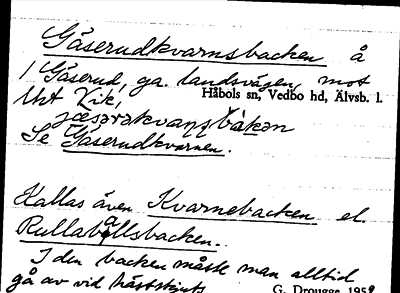 Gäserudkvarnsbacken å
/ Gäserud, ga. landsvägen, mot
Håbols sn, Vedbo hd, Älvsb. l.
Se Gäserudkvarnen.
Kallas även Kvarnebacken el.
Rullabollsbacken.
I den backen måste man alltid
gå av vid hästskjuts
G. Drougge 1958